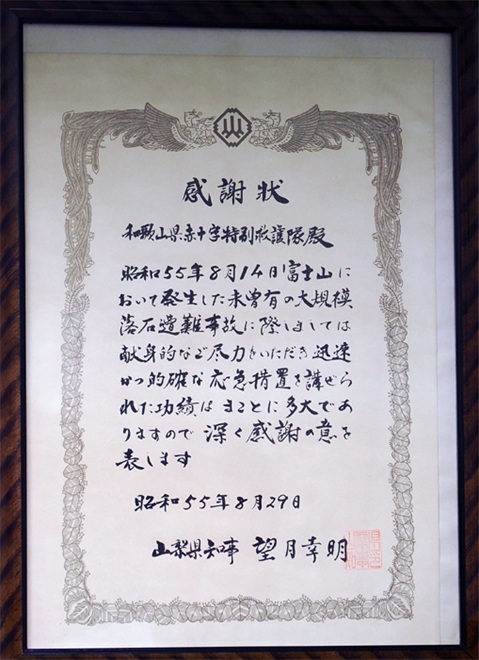 感謝状
和歌山県赤十字特別救護隊殿
昭和55年8月14日富士山に
おいて発生した未曽有の大規模
落石遭難事故に際しましては
献身的なご尽力をいただき迅速
かつ的確な応急措置を講ぜら
れた功績はまことに多大であ
りますので深く感謝の意を
表します
昭和55年8月29日
山梨県知事 望月幸明